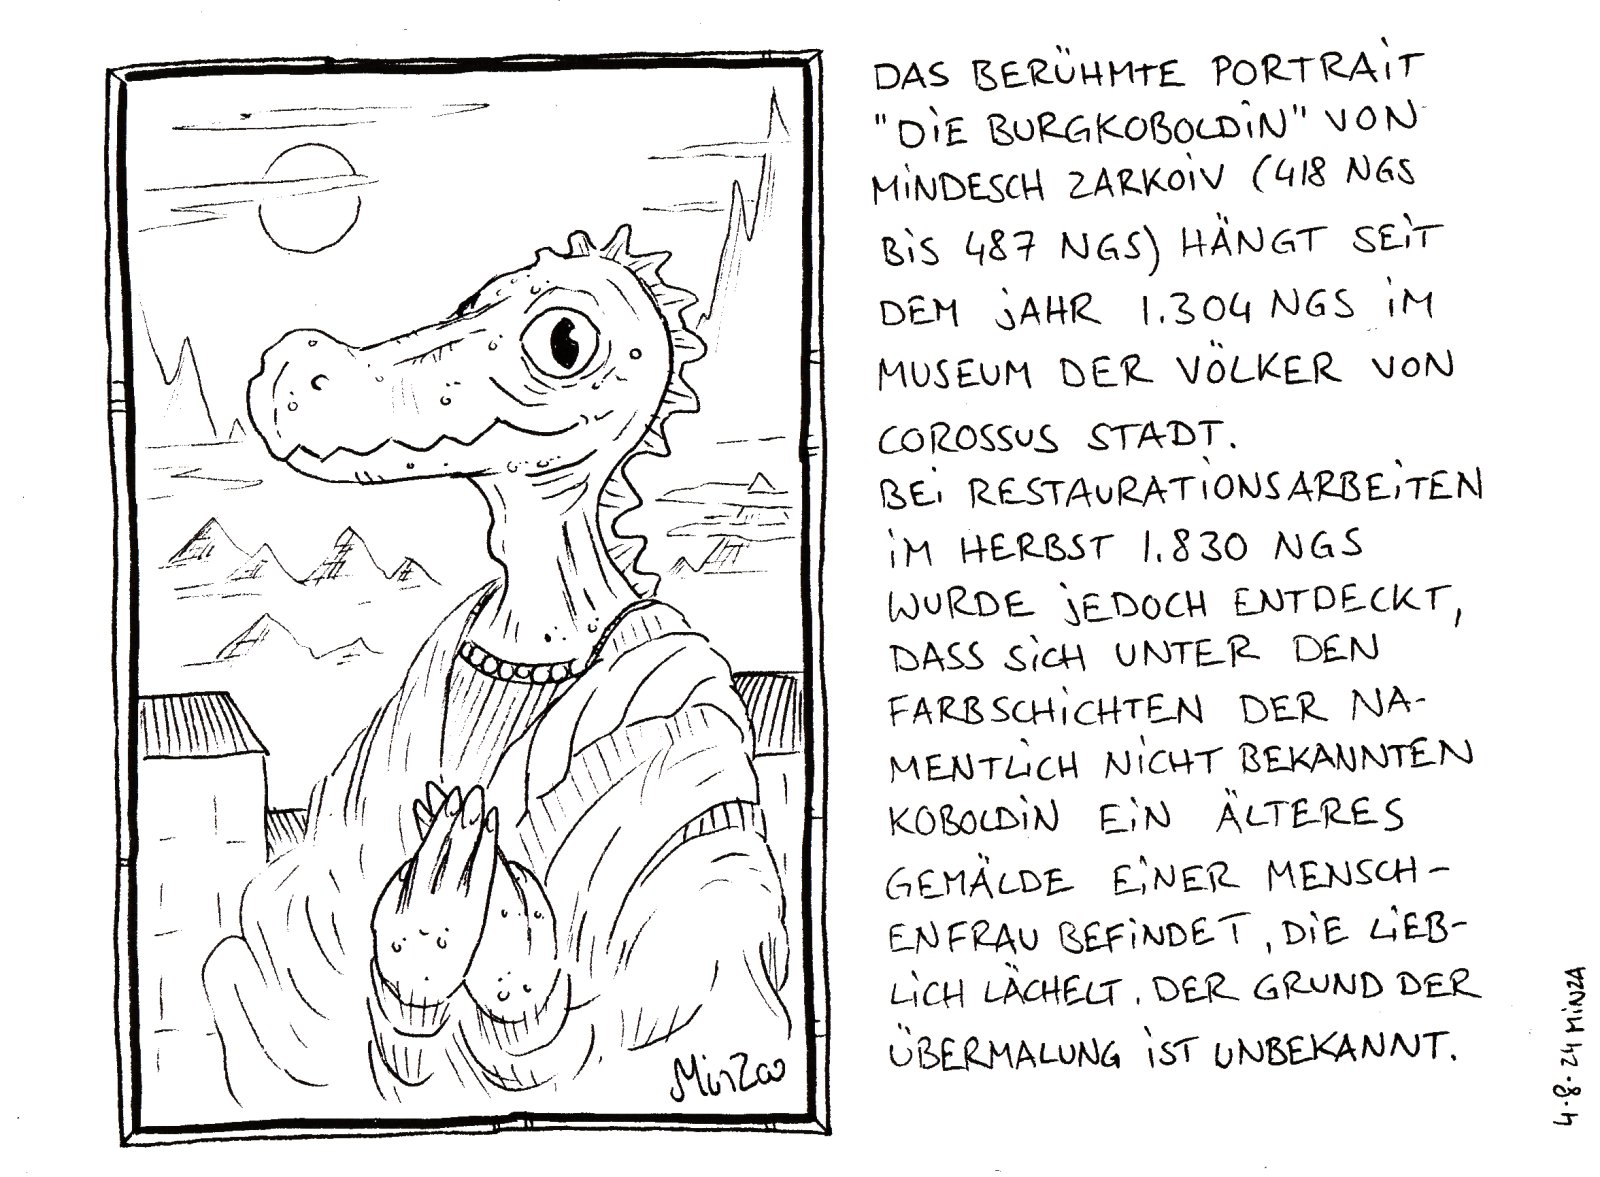 DAS BERÜHMTE PORTRAIT
"DIE BURGKOBOLDIN" VON
MINDESCH ZARKOIV (418 NGS
BIS 487 NGS) HÄNGT SEIT
DEM JAHR 1.304 NGS IM
MUSEUM DER VÖLKER VON
COROSSUS STADT.
BEI RESTAURATIONSARBEITEN
IM HERBST 1.830 NGS
WURDE JEDOCH ENTDECKT,
DASS SICH UNTER DEN
FARBSCHICHTEN DER NA-
MENTLICH NICHT BEKANNTEN
KOBOLDIN EIN ÄLTERES
GEMÄLDE EINER MENSCH-
ENFRAU BEFINDET, DIE LIEB-
LICH LÄCHELT. DER GRUND DER
ÜBERMALUNG IST UNBEKANNT.
4.8.24 MINZA